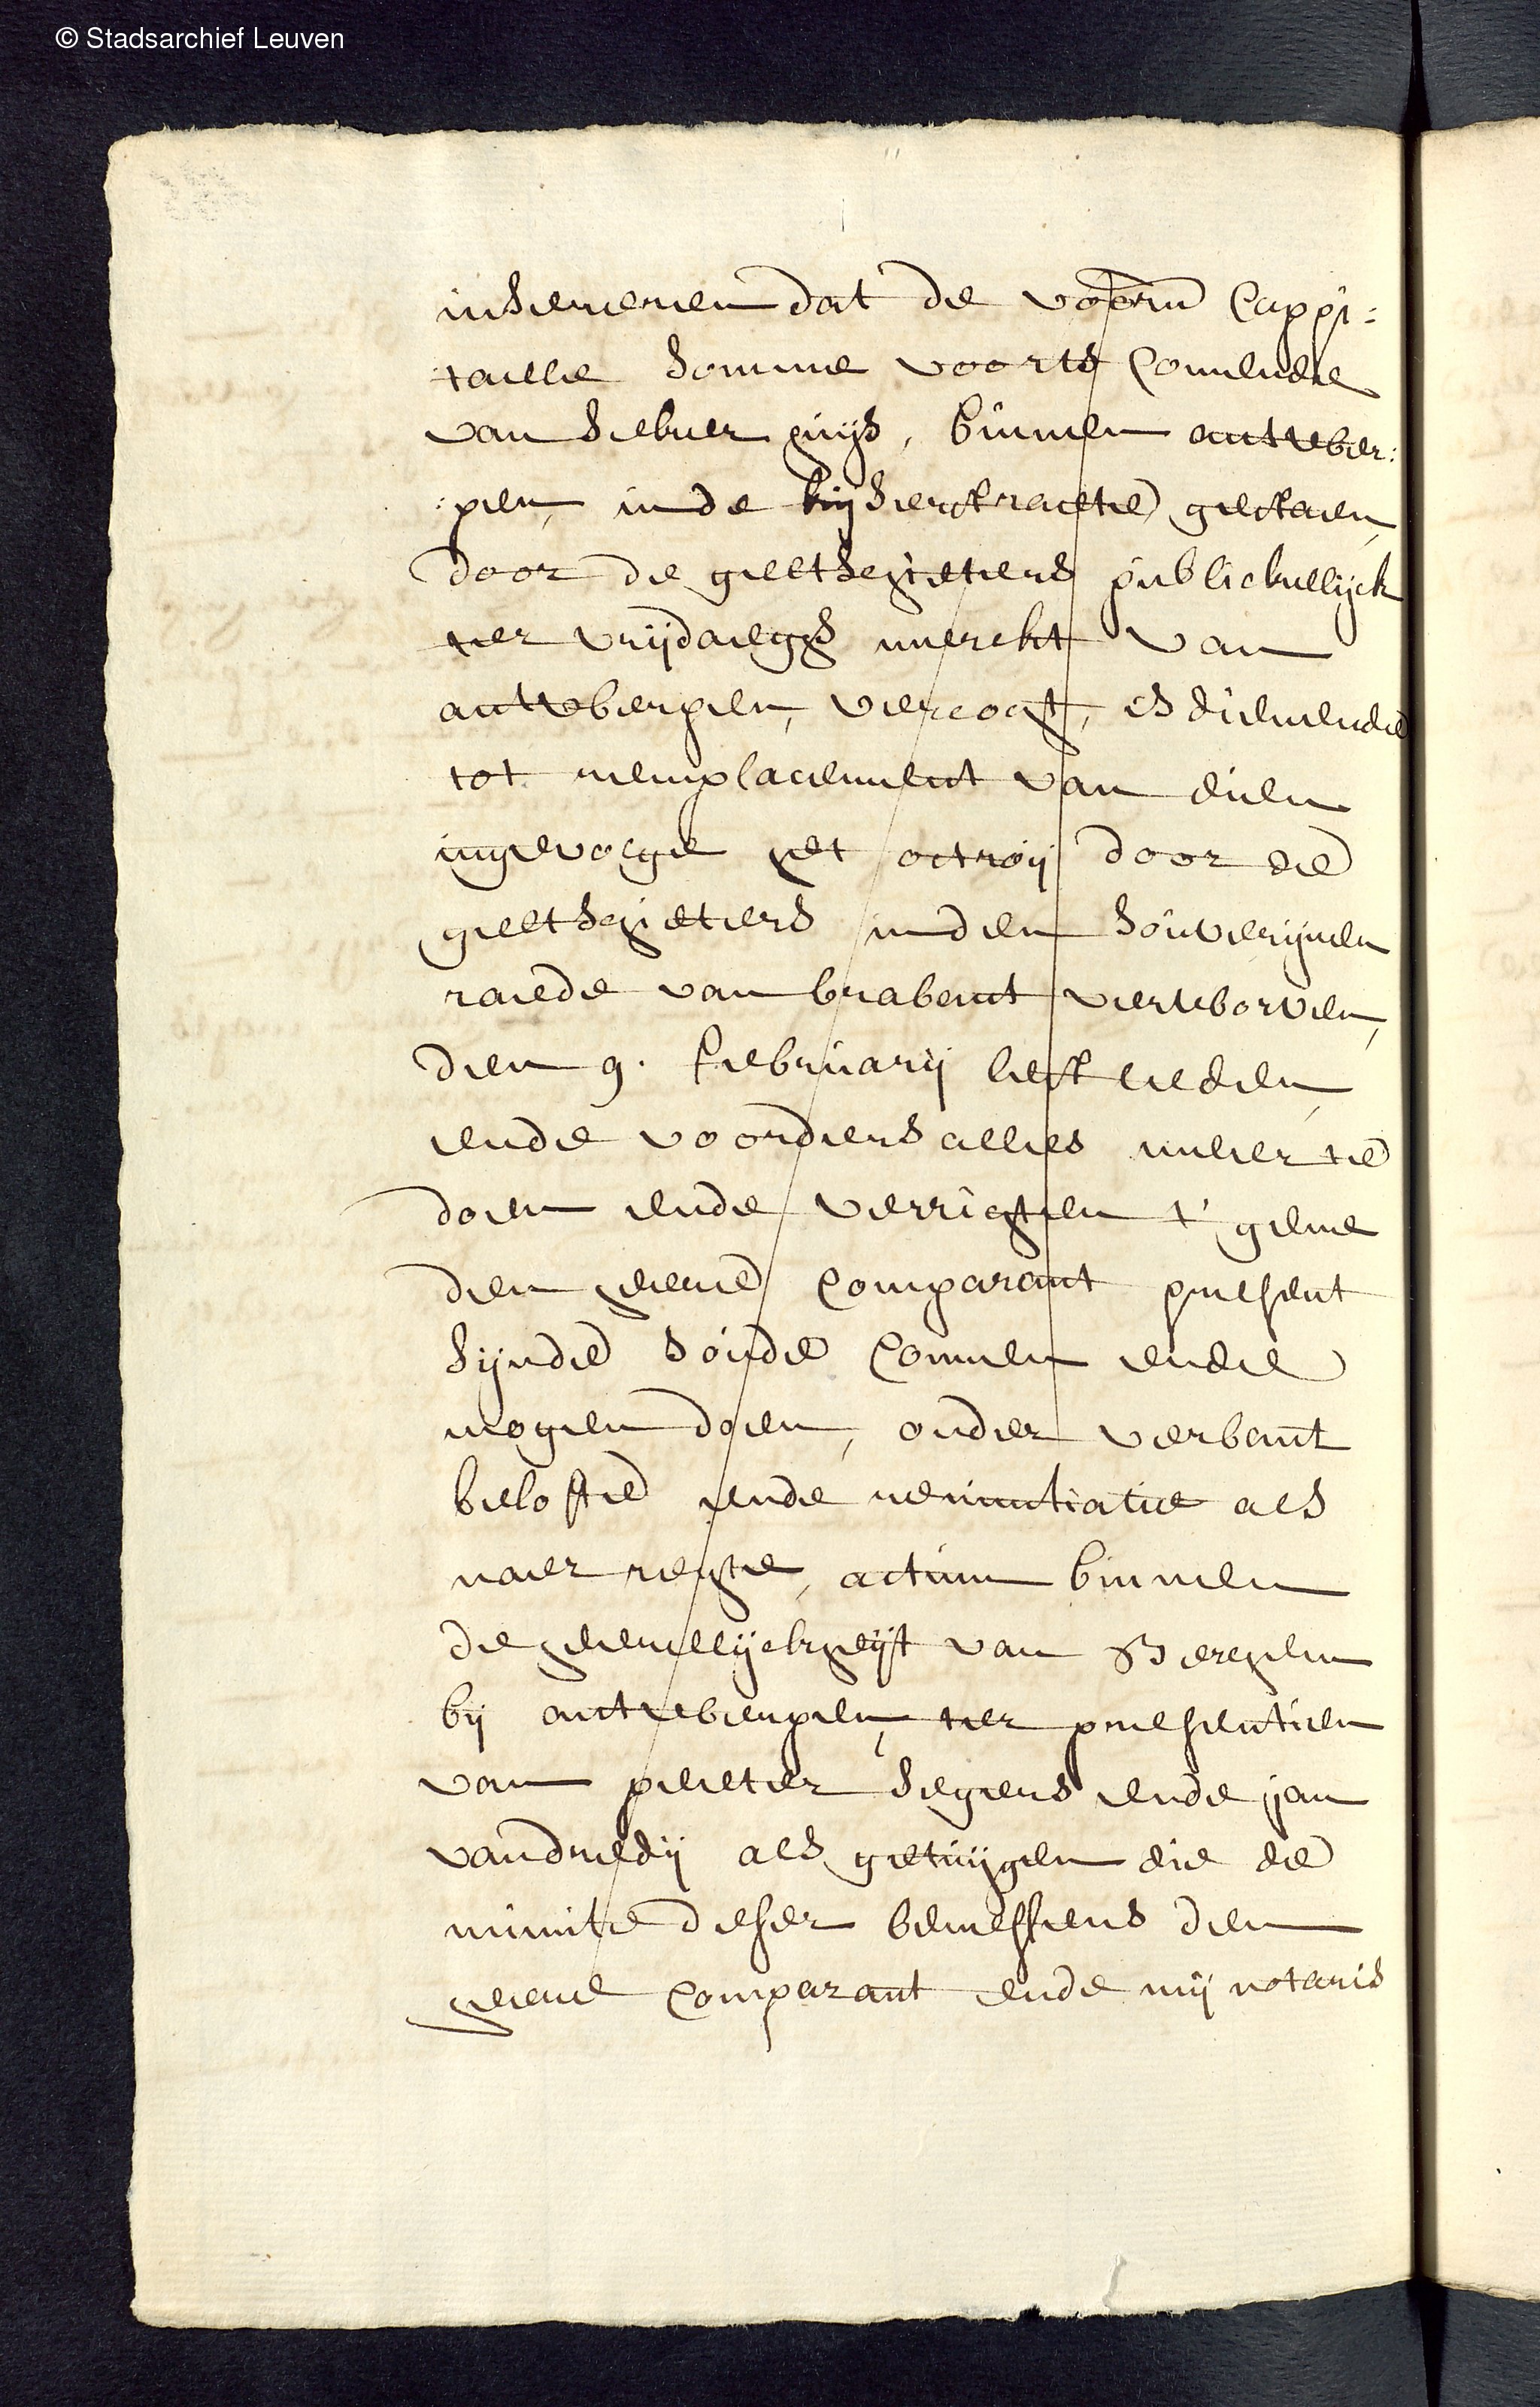 © Stadsarchief Leuven
insereren dat de voorn Cappi:
taele somme voorts Comende
van seker huijs, binnen antwer:
:pen, inde keijserstraete gestaen,
door de geltschieters publickelijck
ter vrijdaeghs merckt van
antwerpen, vercogt, es dienende
tot remplacement van dien
ingevolge het octroij door de
geltschieters inden souverijnen
raede van brabant verworven,
den 9. februarij lestleden,
ende voorders alles meer te
doen ende verrigten t' gene
den heere Comparant present
sijnde soude Connen ende
mogen doen, onder verbant
belofte ende renuntiatie als
naer regte, actum binnen
de heerelijckheijt van Berchem
bij antwerpen, ter presentien
van peeter segers ende jan
vandredij als getuijgen die de
minute deser beneffens den
heere Comparant ende mij notaris